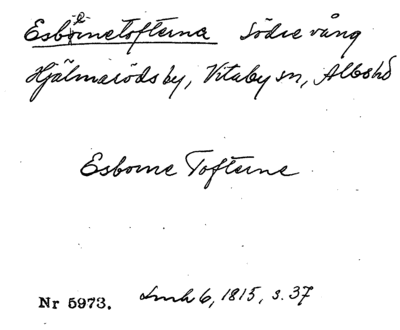 Esbornetofterna Södre vång
Hjälmaröds by, Vitaby sn, Albo hd
Esborne Tofterne
Nr 5973. Lmh 6, 1815, s. 37